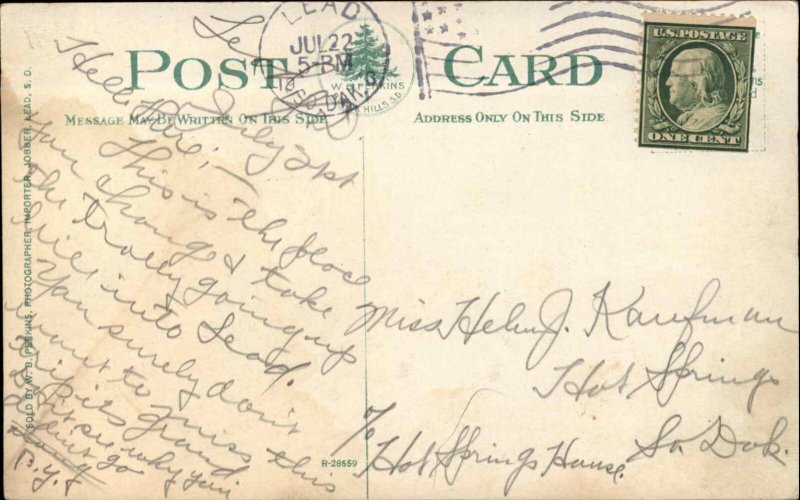 POST CARD
LEAD
JUL 22
5-PM
SO. DAK.
W. B. PERKINS
HILLS, S.D.
U.S. POSTAGE
ONE CENT
MESSAGE MAY BE WRITTEN ON THIS SIDE
ADDRESS ONLY ON THIS SIDE
SOLD BY W. B. PERKINS, PHOTOGRAPHER, IMPORTER, JOBBER, LEAD, S. D.
R-28559
July 21st
This is the place
you change & take
the trolly going up
hill into Lead.
You surely don't
want to miss this
trip its grand
see why you
didn't go
Miss Helen J. Kaufman
Hot Springs
So Dak.
c/o Hot Springs House.